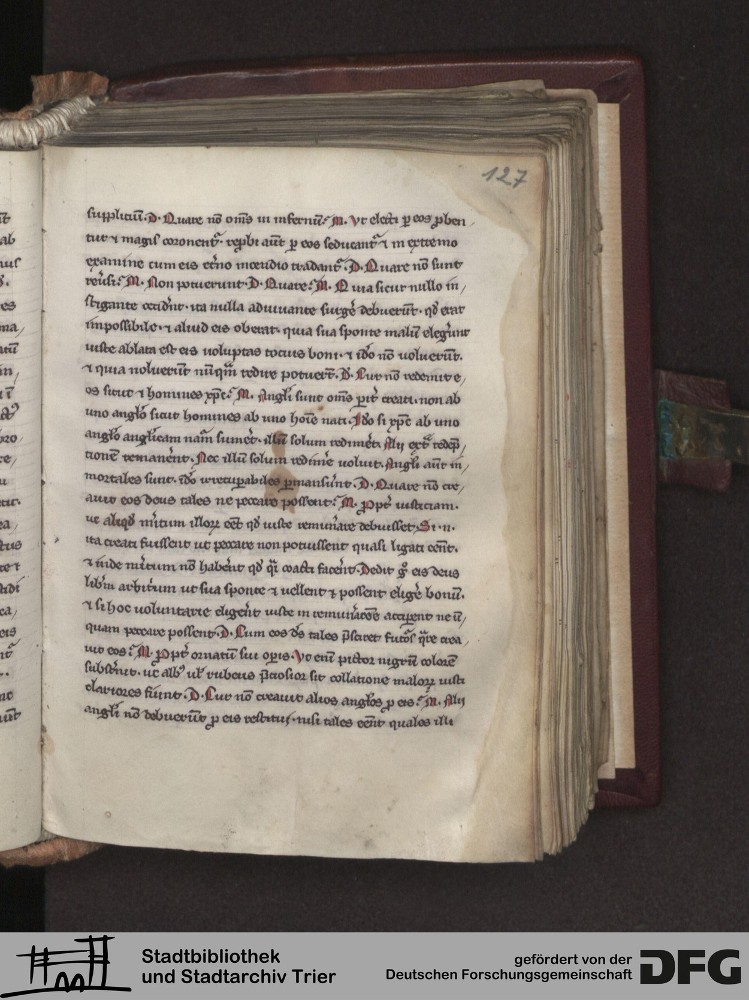 127
suppliciū. D. Quare nō om̄s in infernū? M. Vt electi ꝑ eos ꝓben
tur ⁊ magis coronent᷑. reprobi aūt ꝑ eos seducant᷑ ⁊ in extremo
examine cum eis et̄no incendio tradant᷑. D. Quare nō sunt
reuersi? M. Non potuerunt. D. Quare? M. Quia sicut nullo in/
stigante cecider̄t. ita nulla adiuuante surgē debuerūt. qđ erat
impossibile. ⁊ aliud eis oberat. quia sua sponte malū elegerunt
iuste ablata est eis uoluptas tocius boni. ⁊ iđo nō uoluerūt.
⁊ quia noluerūt nūqm̄ redire potuer̄t. D. Cur nō redemit e/
os sicut ⁊ homines xp̄c? M. Angli sunt om̄s parit̄ creati. non ab
uno anglo sicut homines ab uno hoīe nati. Iđo si xp̄c ab uno
anglo anglicam nat̄am sumeret. illū solum redimeret. Alii ext᷑ redēp/
tionē remanerent. Nec illū solum redimē uoluit. Angli aūt in/
mortales sunt. iđo irrecuꝑabiles ꝑmanserunt. D. Quare nō cre/
auit eos deus tales ne peccare possent? M. Ppt̄ iusticiam.
ut aliqđ m̄itum illoꝝ eēt qđ iuste remunerare debuisset. Si .n.
ita creati fuissent ut peccare non potuissent quasi ligati eēnt.
⁊ inde meritum nō haberent qđ qͣi coacti facerent. Dedit ḡ eis deus
lib̄m arbitrium ut sua sponte ⁊ uellent ⁊ possent eligē bonū.
⁊ si hoc uoluntarie eligerent iuste in remunerac̄oē acciperent ne ū/
quam peccare possent. D. Cum eos d̄s tales p̄sciret fut̄os q̄re crea/
uit eos? M. Ppt̄ ornatū sui oꝑis. Vt enī pictor nigrū colorē
substernit. ut albꝰ uł rubeus p̄ciosior sit collatione maloꝝ iusti
clariores fiunt. D. Cur nō creauit alios angłos ꝓ eis? M. Alij
angłi nō debuerūt ꝓ eis restitui. nisi tales eēnt quales illi
Stadtbibliothek
und Stadtarchiv Trier
gefördert von der
Deutschen Forschungsgemeinschaft
DFG